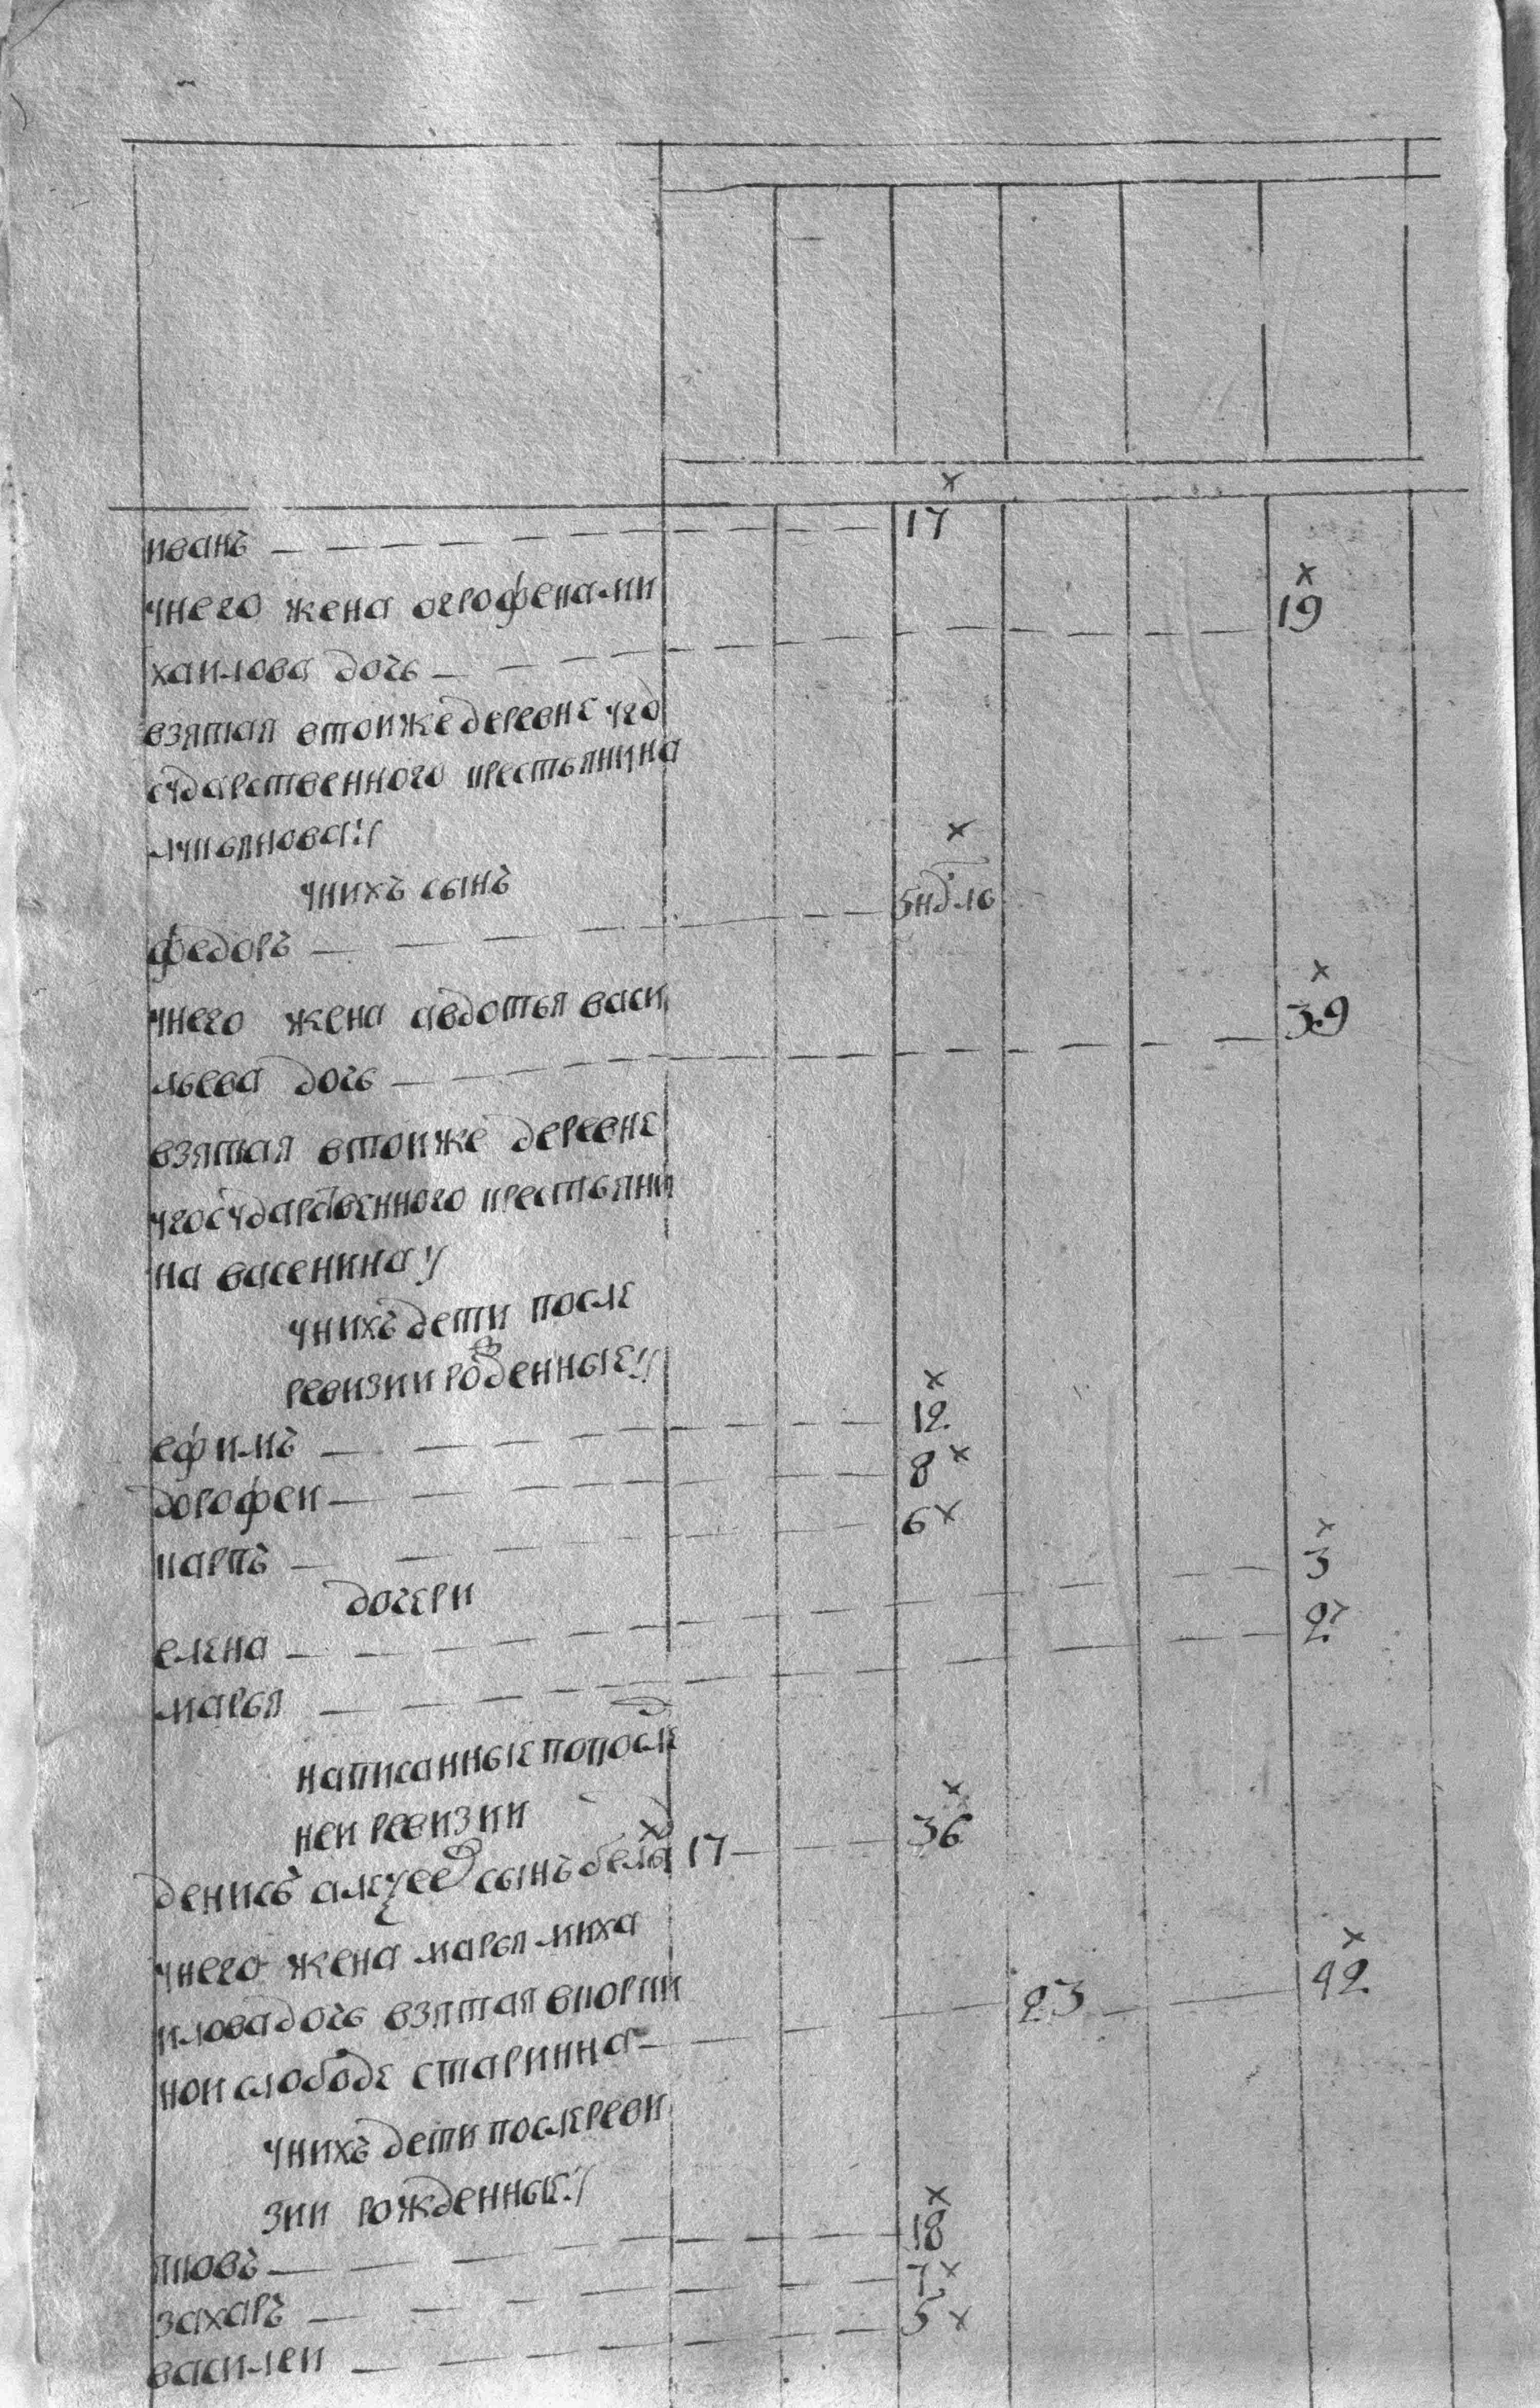 иванъ 17
унего жена огрофена ми
хаилова дочь 19
взятая втоиже деревне уго
сударственного крестьянина
лукьянова
унихъ сынъ
федоръ 5 ндль
унего жена авдотья васи
льева дочь 39
взятая втоиже деревне
угосударственного крестьяни
на васенина
унихъ дети после
ревизии рожденные
ефимъ 12
дорофеи 8
карпъ 6
дочери
елена 3
марья 2
написанные попосле
неи ревизии
денисъ алеѯеевъ сынъ белы 17 36
унего жена марья миха
илова дочь взятая вкорки
нои слободе старинна 23 42
унихъ дети послереви
зии рожденные
яковъ 18
захаръ 7
василеи 5